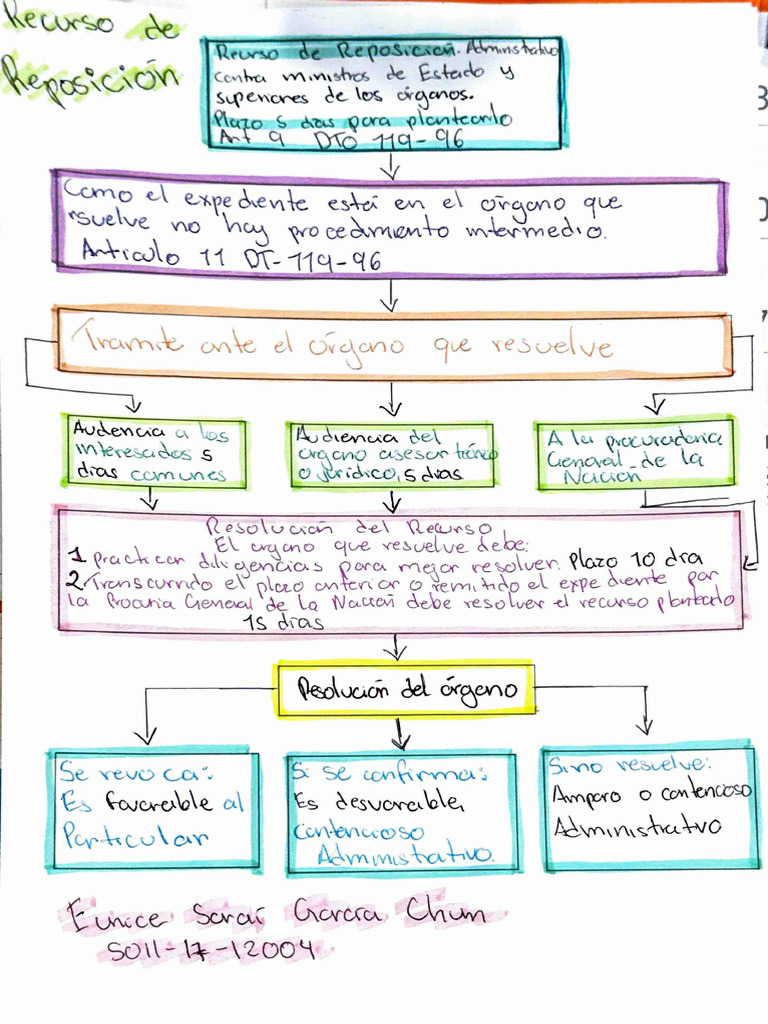 Recurso de
Reposición
Recurso de Reposición. Administrativo
contra ministros de Estado y
superiores de los órganos.
Plazo 5 días para plantearlo
Art 9 DTO 119-96
Como el expediente está en el órgano que
resuelve no hay procedimiento intermedio.
Articulo 11 DT-119-96
Tramite ante el órgano que resuelve
Audencia a los
interesados 5
días comunes
Audiencia del
órgano asesor técnico
o jurídico, 5 días
A la procuradoria
General de la
Nación
Resolución del Recurso
El órgano que resuelve debe:
1 practicar diligencias para mejor resolver. Plazo 10 día
2. Transcurrido el plazo anterior o remitido el expediente por
la Procuria General de la Nación debe resolver el recurso planteado
15 días
Resolución del órgano
Se revoca:
Es favorable al
Particular
Si se confirma:
Es desvorable,
contencioso
Administrativo.
Si no resuelve:
Amparo o contencoso
Administrativo
Eunice Saraí García Chun
5011-17-12004